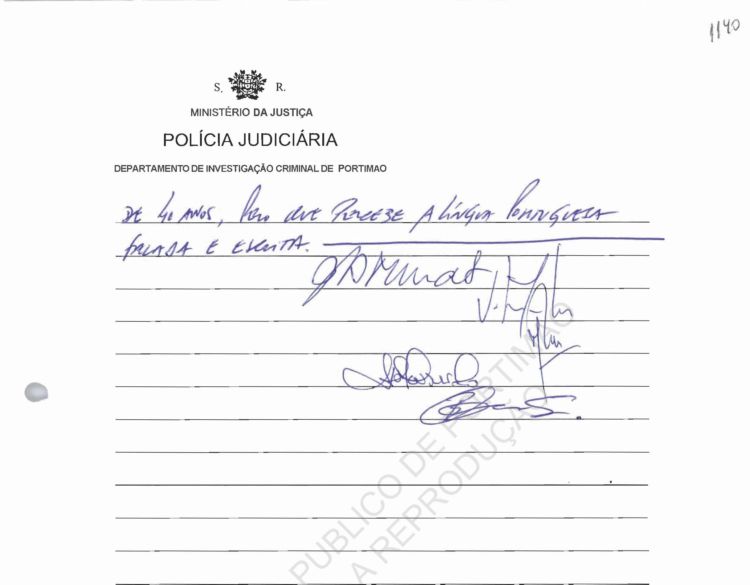 1140
S. R.
MINISTÉRIO DA JUSTIÇA
POLÍCIA JUDICIÁRIA
DEPARTAMENTO DE INVESTIGAÇÃO CRIMINAL DE PORTIMAO
DE 40 ANOS, PELO QUE PERCEBE A LÍNGUA PORTUGUESA
FALADA E ESCRITA.
PUBLICO DE PORTIMAO
A REPRODUÇÃO